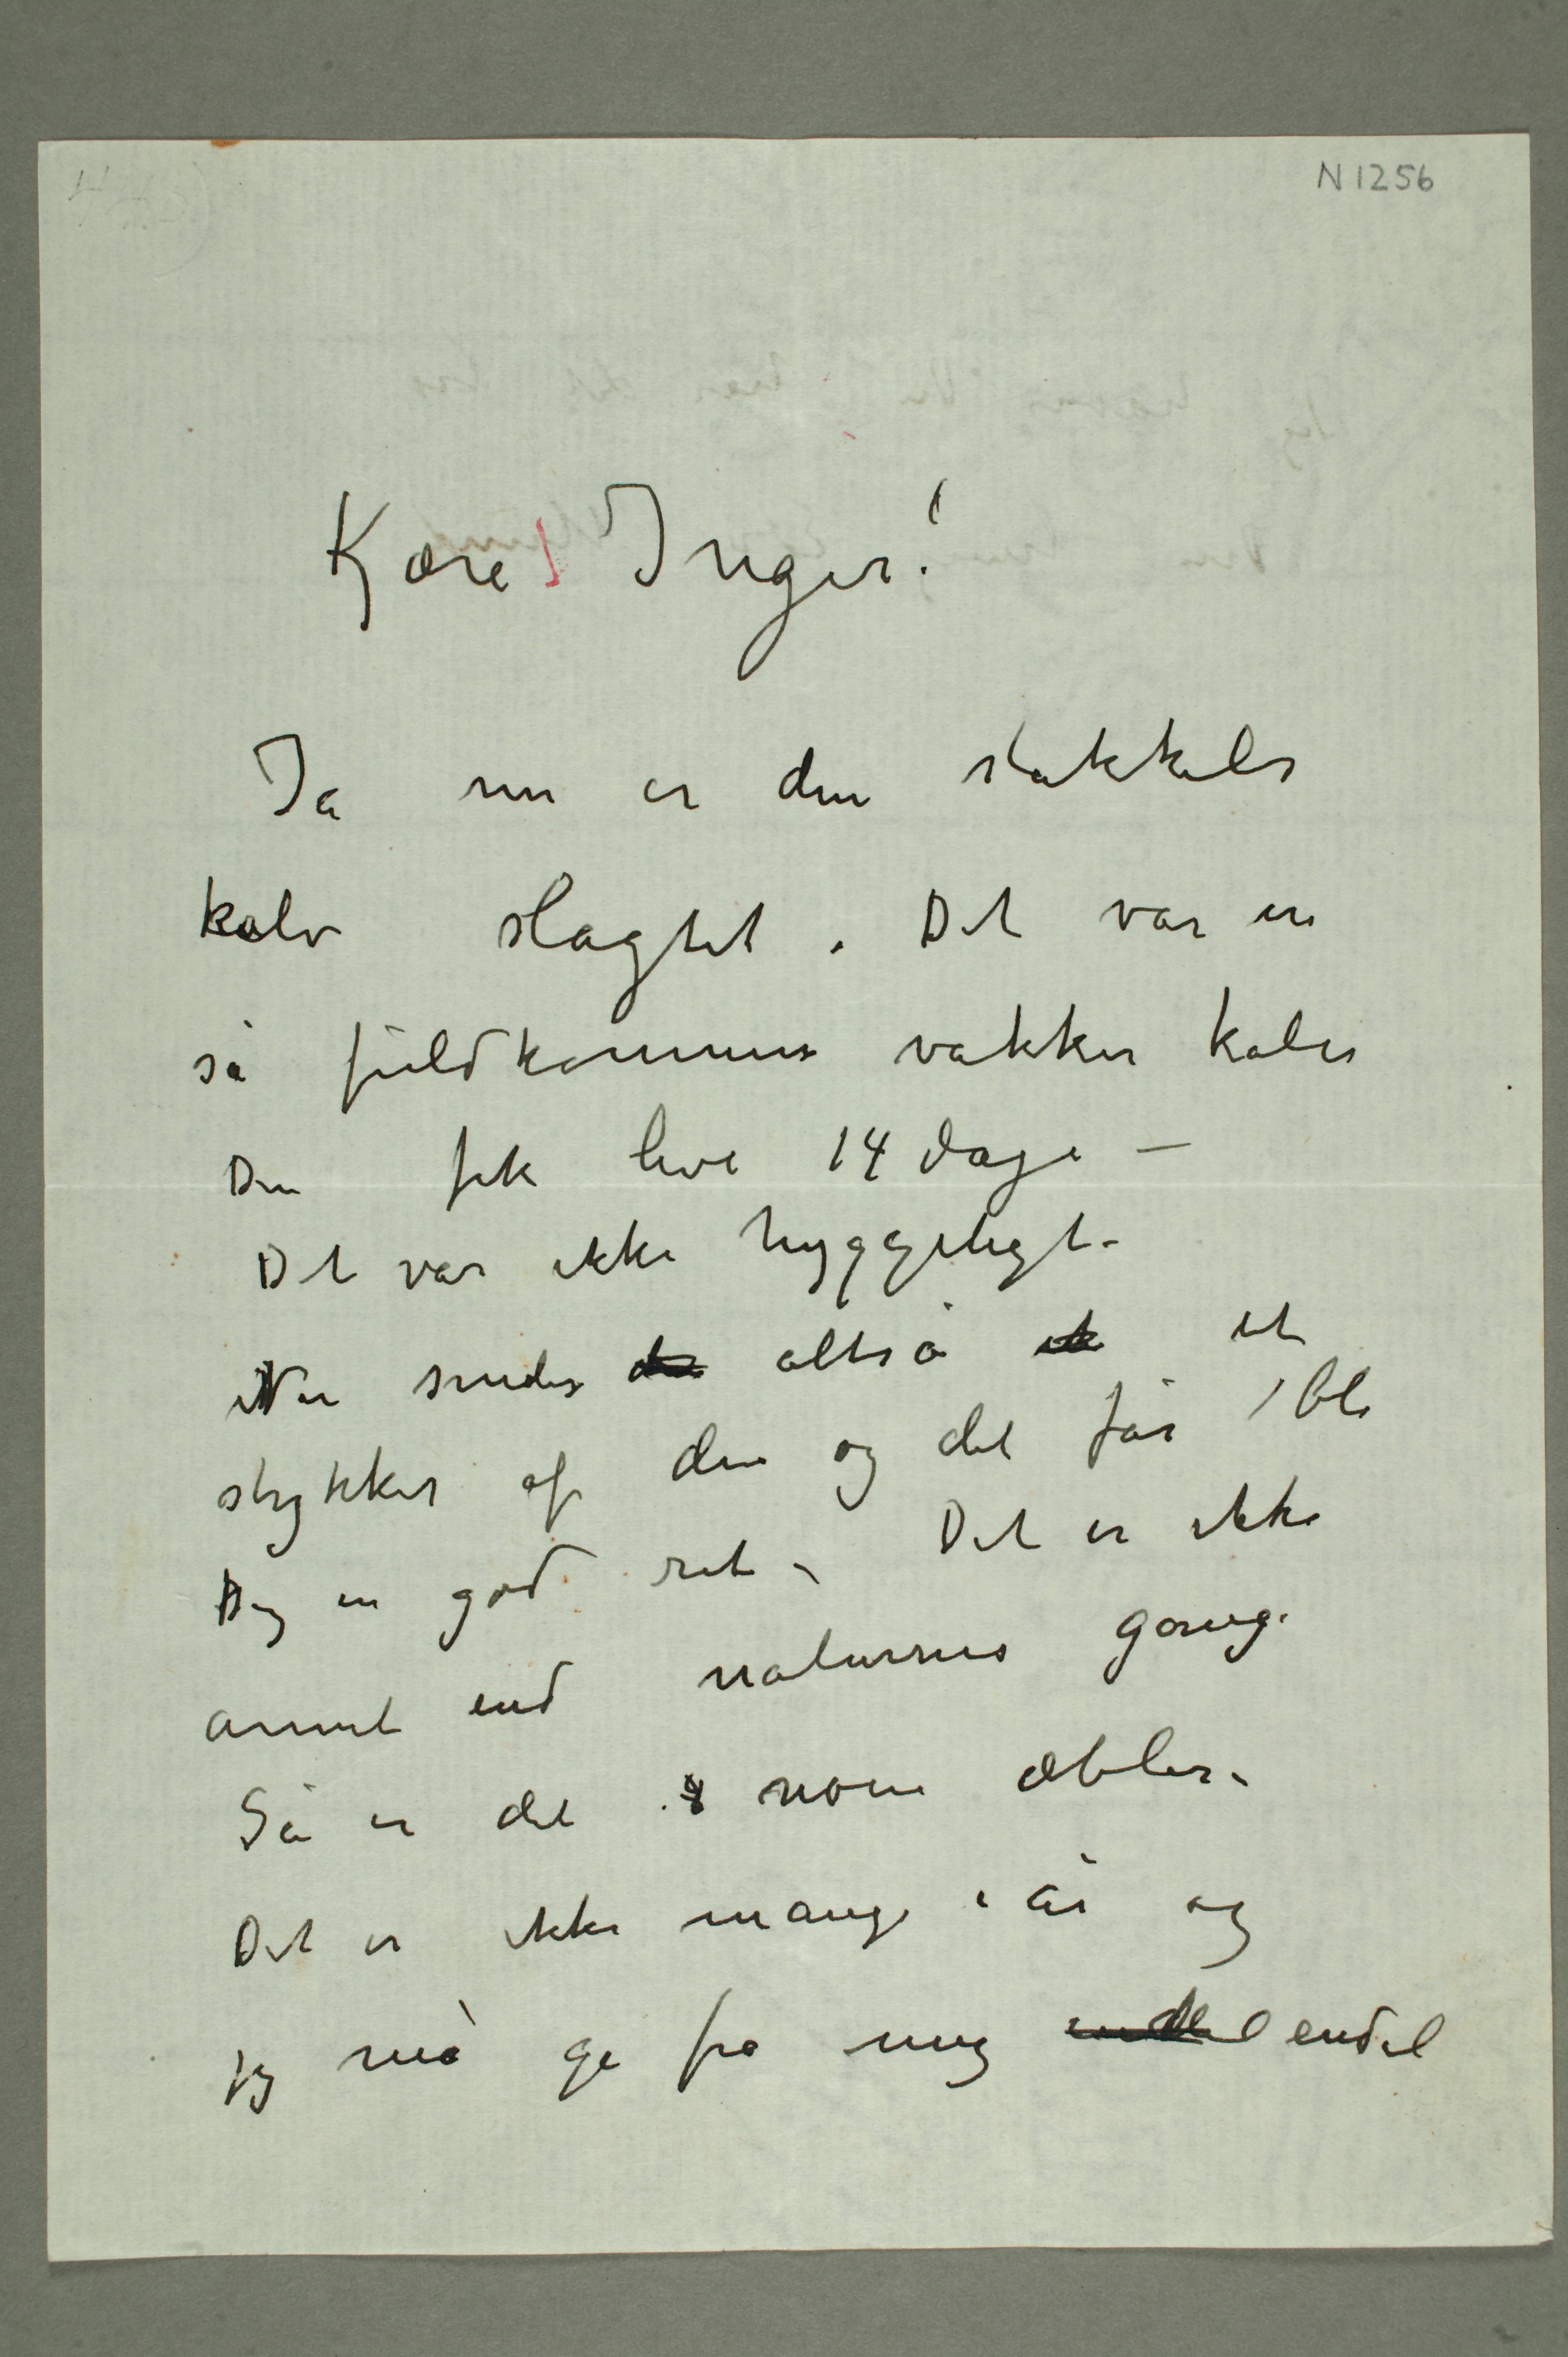 N 1256
Kære Inger!
Ja nu er den stakkels
kalv slagtet. Det var en
så fuldkommen vakker kalv
Den fik leve 14 dage –
Det var ikke hyggeligt.
Nu sendes altså et
stykke af den og det får bli
Dig en god ret. Det er ikke
annet end naturens gang.
Så er det noen æbler.
Det er ikke mange i år og
jeg må ge fra mig endel endel